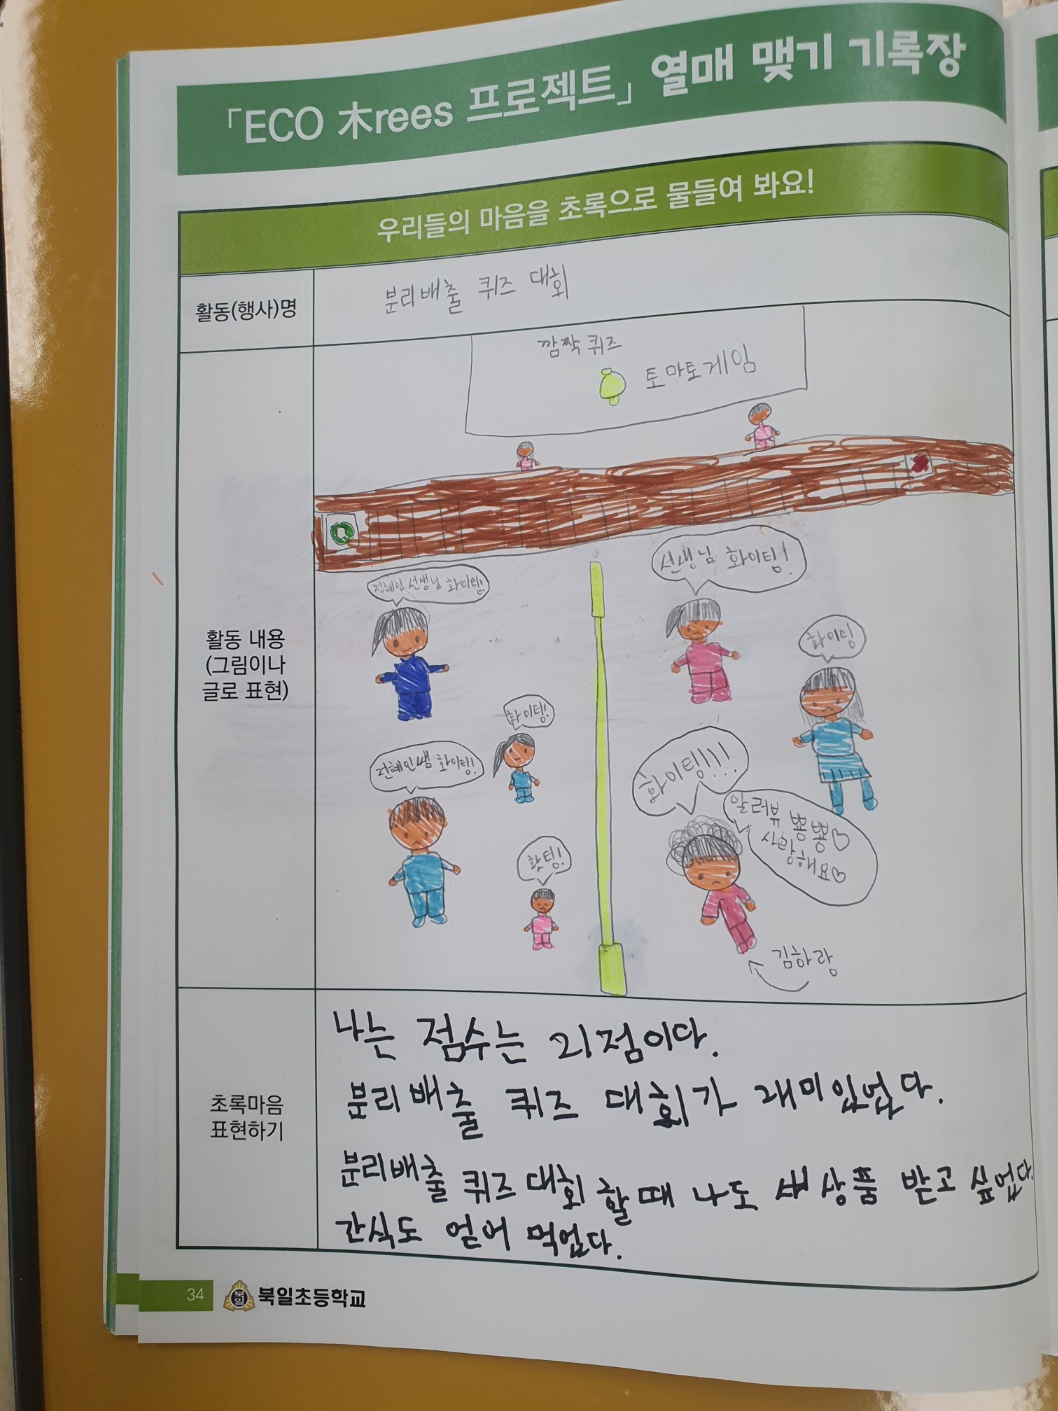 「ECO 木rees 프로젝트」 열매 맺기 기록장
우리들의 마음을 초록으로 물들여 봐요!
활동(행사)명
분리배출 퀴즈 대회
깜짝 퀴즈
토마토게임
활동 내용
(그림이나
글로 표현)
전혜인 선생님 화이팅!
선생님 화이팅!
화이팅
화이팅!
전혜인쌤 화이팅!
화이팅!!!
알러뷰 뿅뿅♡
사랑해요♡
핫팅!
김하랑
초록마음
표현하기
나는 점수는 21점이다.
분리배출 퀴즈 대회가 재미있었다.
분리배출 퀴즈 대회 할때 나도 새상품 받고 싶었다.
간식도 얻어 먹었다.
34
북일
북일초등학교